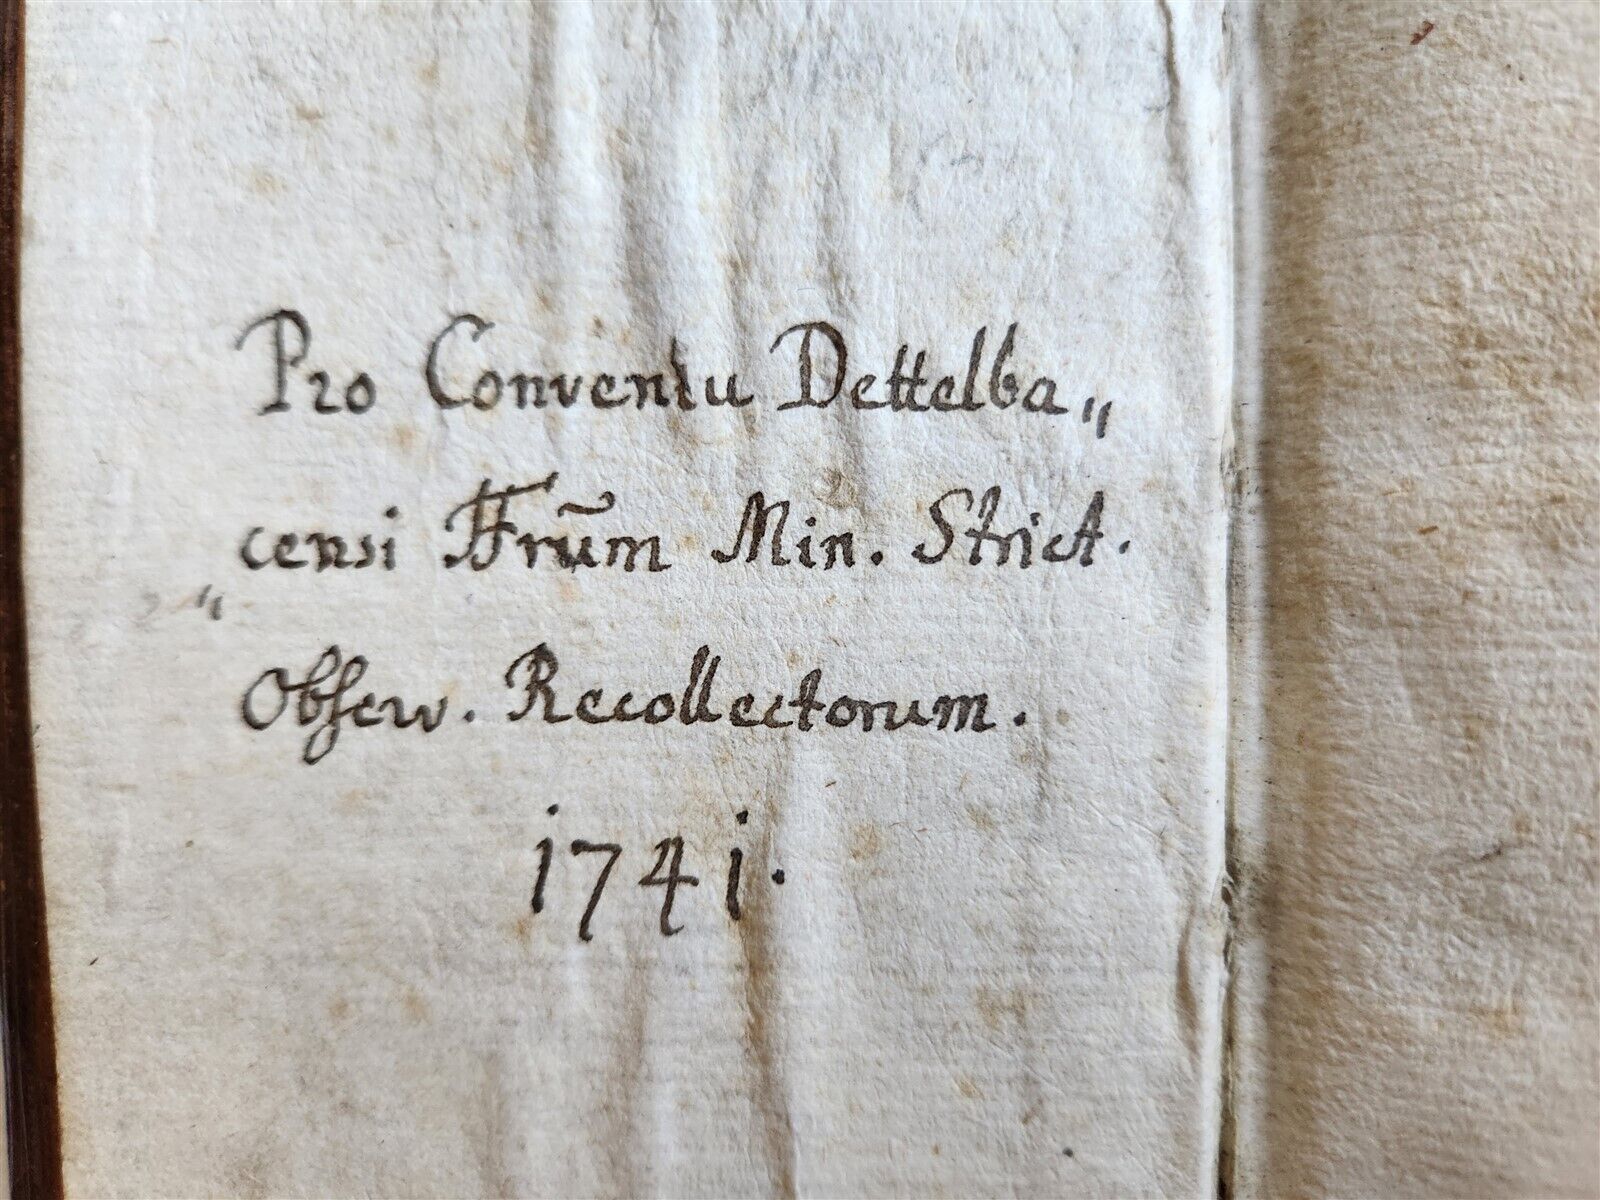 Pro Conventu Dettelba„
„censi FFrūm Min. Strict.
Observ. Recollectorum.
1741.